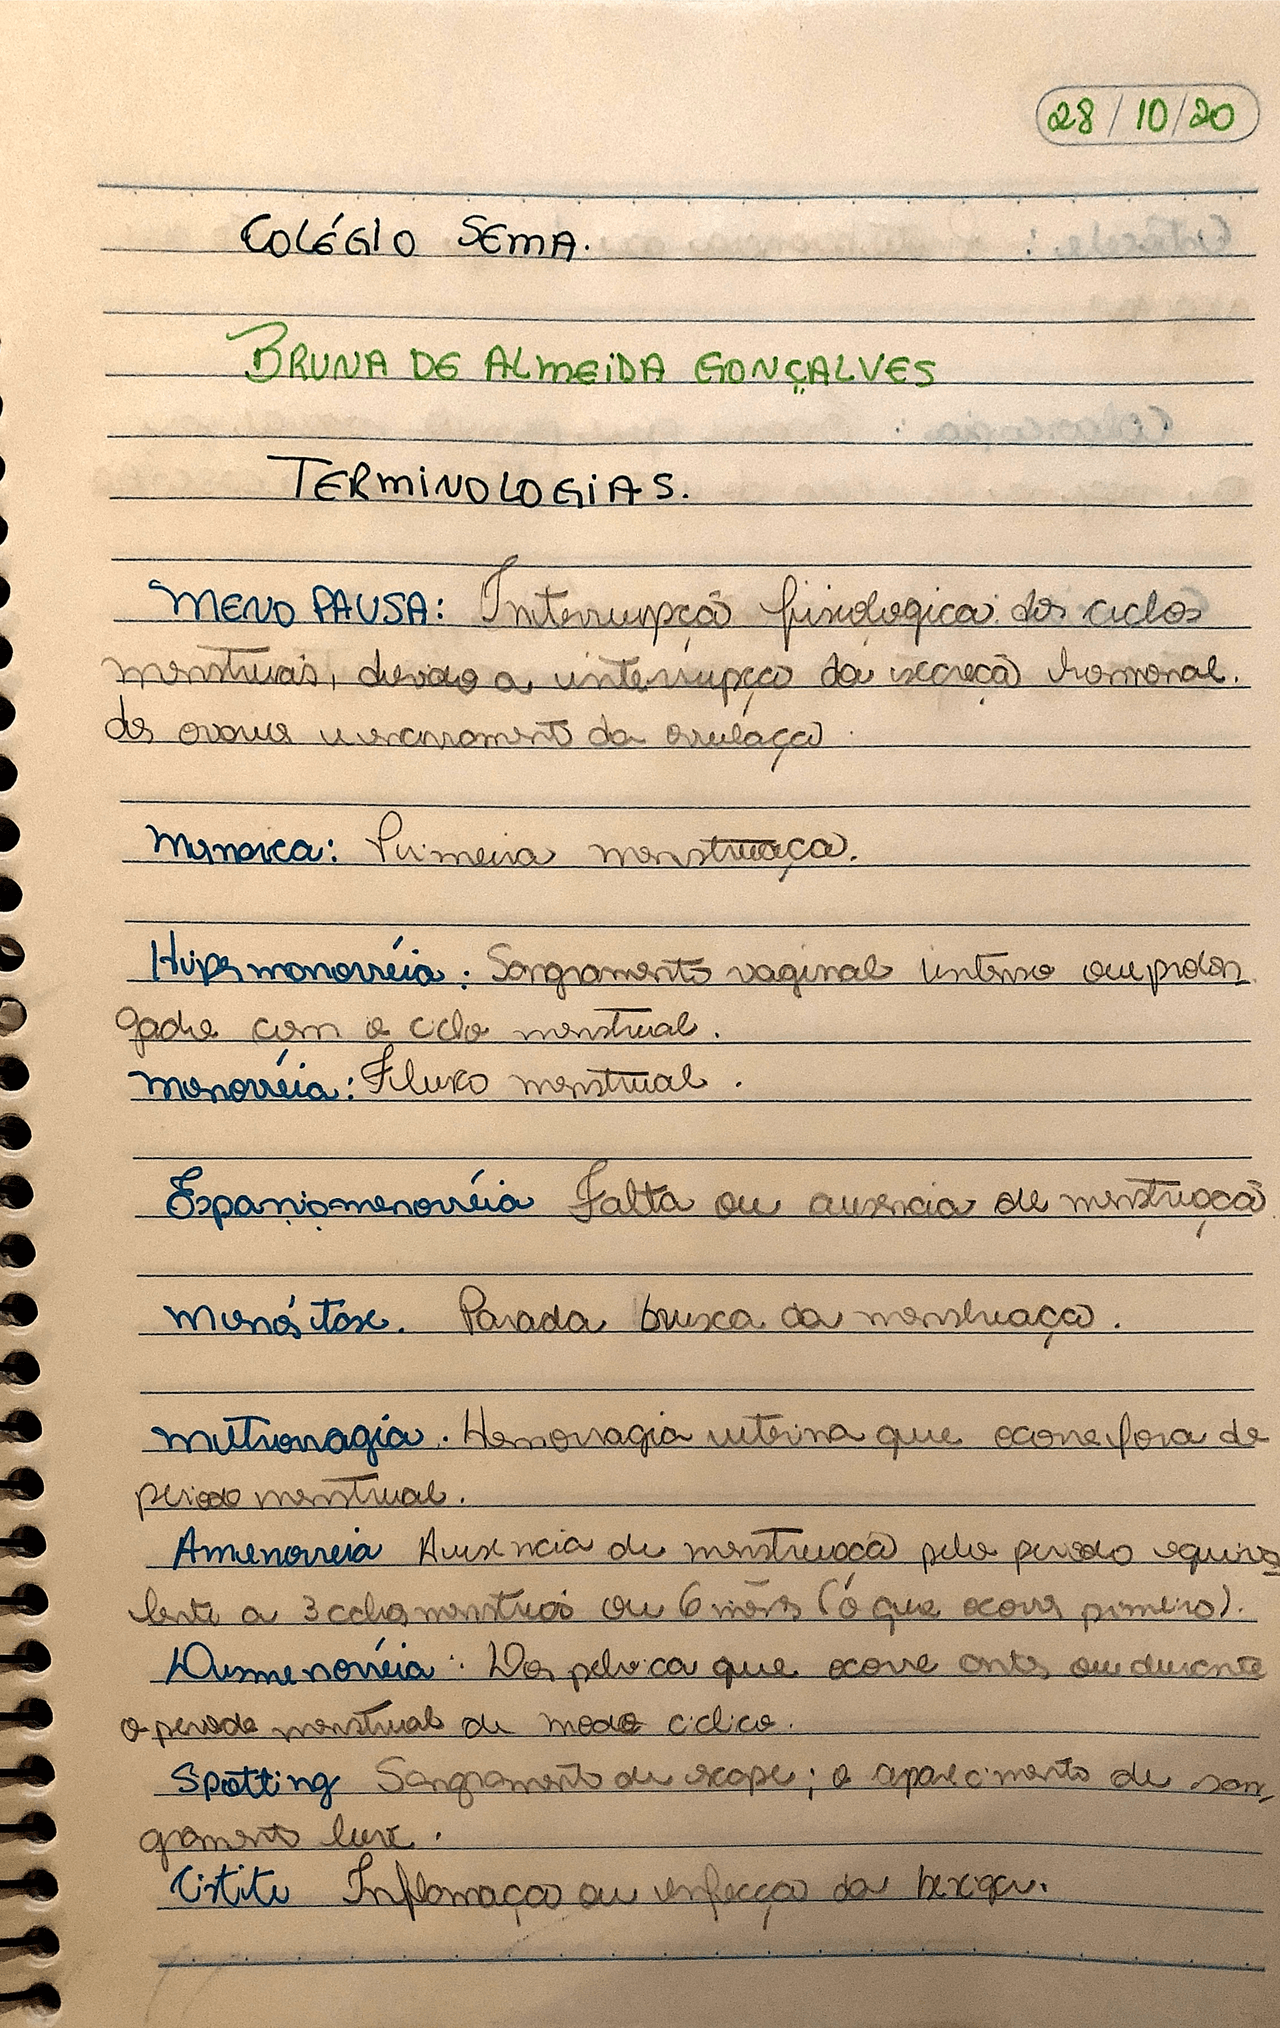 28/10/20
COLÉGIO SEMA.
BRUNA DE ALMEIDA GONÇALVES
TERMINOLOGIAS.
MENOPAUSA: Interrupção fisiologica dos ciclos
menstruais, devido a interrupção da secreçã hormonal.
dos ovarios e encerramento da ovulação.
Menarca: Primeira menstruação.
Hipermonorréia: Sangramento vaginal intenso ou prolon
gado com o ciclo menstrual.
Menorréia: Fluxo menstrual.
Espaniomenorréia Falta ou ausencia de menstruaçã
Menóstase. Parada brusca da menstruação.
Metrorragia. Hemorragia uterina que ocorre fora de
periodo menstrual.
Amenorreia Ausencia de menstruaçã pelo periodo equiva
lente a 3 ciclos menstruais ou 6 mês (o que ocorra primeiro).
Dismenorréia: Dor pelvica que ocorre antes ou durante
o periodo menstrual de modo ciclico.
Spotting Sangramento de escape; o aparecimento de san
gramento leve.
Cistite Inflamação ou infecção da bexiga.